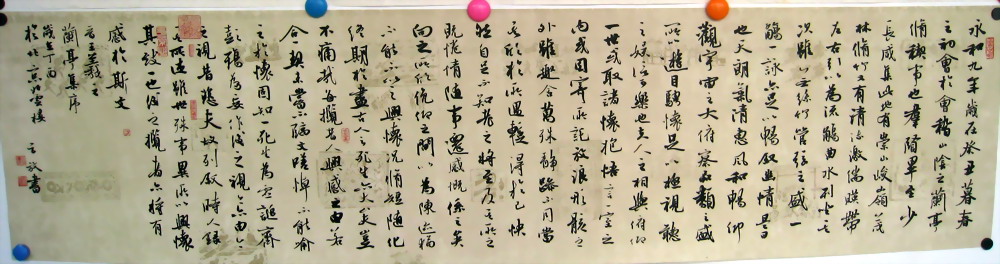 永和九年歲在癸丑暮春
之初會於會稽山陰之蘭亭
脩禊事也羣賢畢至少
長咸集此地有崇山峻嶺茂
林脩竹又有清流激湍暎帶
左右引以為流觴曲水列坐其
次雖無絲竹管弦之盛一
觴一詠亦足以暢叙幽情是日
也天朗氣清惠風和暢仰
觀宇宙之大俯察品類之盛
所以遊目騁懷足以極視聽
之娛信可樂也夫人之相與俯仰
一世或取諸懷抱悟言一室之
內或因寄所託放浪形骸之
外雖趣舍萬殊靜躁不同當
其欣於所遇暫得於己快
然自足不知老之將至及其所之
既惓情隨事遷感慨係之矣
向之所欣俛仰之間以為陳迹猶
不能不以之興懷況脩短隨化
終期於盡古人云死生亦大矣豈
不痛哉每攬昔人興感之由若
合一契未嘗不臨文嗟悼不能喻
之於懷固知一死生為虛誕齊
彭殤為妄作後之視今亦由今
之視昔悲夫故列叙時人錄
其所述雖世殊事異所以興懷
其致一也後之攬者亦將有
感於斯文
右王羲之
蘭亭集序
於北京
書